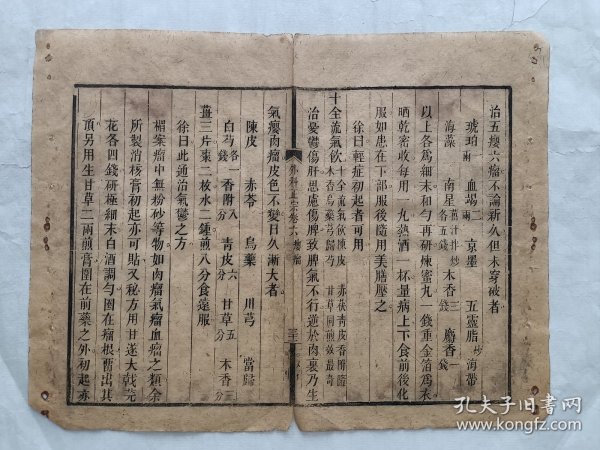 治五癭六瘤不論新久但未穿破者
琥珀一兩 血竭二 京墨 五靈脂炒 海帶
海藻 南星各五錢薑汁拌炒 木香三錢 麝香一錢
以上各爲細末和勻再研煉蜜丸一錢重金箔爲衣
晒乾密收每用一丸熱酒一杯量病上下食前後化
服如患在下部服後隨用美膳壓之
徐曰輕症初起者可用
十全流氣飲 十全流氣飲陳皮 赤茯青皮香附隨 木香烏藥芎歸芍 甘草同煎效最奇
治憂鬱傷肝思慮傷脾致脾氣不行逆於肉裏乃生
外科正宗卷六 癭瘤
氣癭肉瘤皮色不變日久漸大者
陳皮 赤苓 烏藥 川芎 當歸
白芍各一錢 香附八分 青皮六分 甘草五分 木香三分
薑三片棗二枚水二鍾煎八分食遠服
徐曰此通治氣鬱之方
楣案瘤中無粉砂等物如肉瘤氣瘤血瘤之類余
所製消核膏初起亦可貼又秘方用甘遂大戟芫
花各四錢研極細末白酒調勻圈在瘤根留出其
頂另用生甘草二兩煎膏圍在前藥之外初起亦
孔夫子旧书网
www.kongfz.com